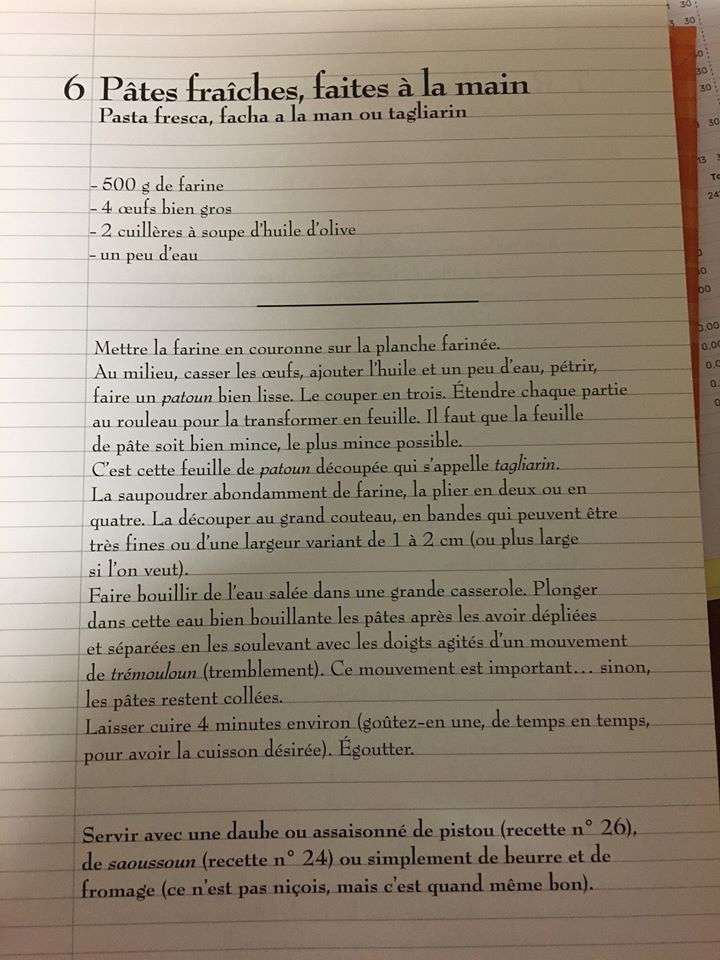 6 Pâtes fraîches, faites à la main
Pasta fresca, facha a la man ou tagliarin
- 500 g de farine
- 4 œufs bien gros
- 2 cuillères à soupe d'huile d'olive
- un peu d'eau
Mettre la farine en couronne sur la planche farinée.
Au milieu, casser les œufs, ajouter l'huile et un peu d'eau, pétrir,
faire un patoun bien lisse. Le couper en trois. Étendre chaque partie
au rouleau pour la transformer en feuille. Il faut que la feuille
de pâte soit bien mince, le plus mince possible.
C'est cette feuille de patoun découpée qui s'appelle tagliarin.
La saupoudrer abondamment de farine, la plier en deux ou en
quatre. La découper au grand couteau, en bandes qui peuvent être
très fines ou d'une largeur variant de 1 à 2 cm (ou plus large
si l'on veut).
Faire bouillir de l'eau salée dans une grande casserole. Plonger
dans cette eau bien bouillante les pâtes après les avoir dépliées
et séparées en les soulevant avec les doigts agités d'un mouvement
de trémouloun (tremblement). Ce mouvement est important... sinon,
les pâtes restent collées.
Laisser cuire 4 minutes environ (goûtez-en une, de temps en temps,
pour avoir la cuisson désirée). Égoutter.
Servir avec une daube ou assaisonné de pistou (recette n° 26),
de saoussoun (recette n° 24) ou simplement de beurre et de
fromage (ce n'est pas niçois, mais c'est quand même bon).